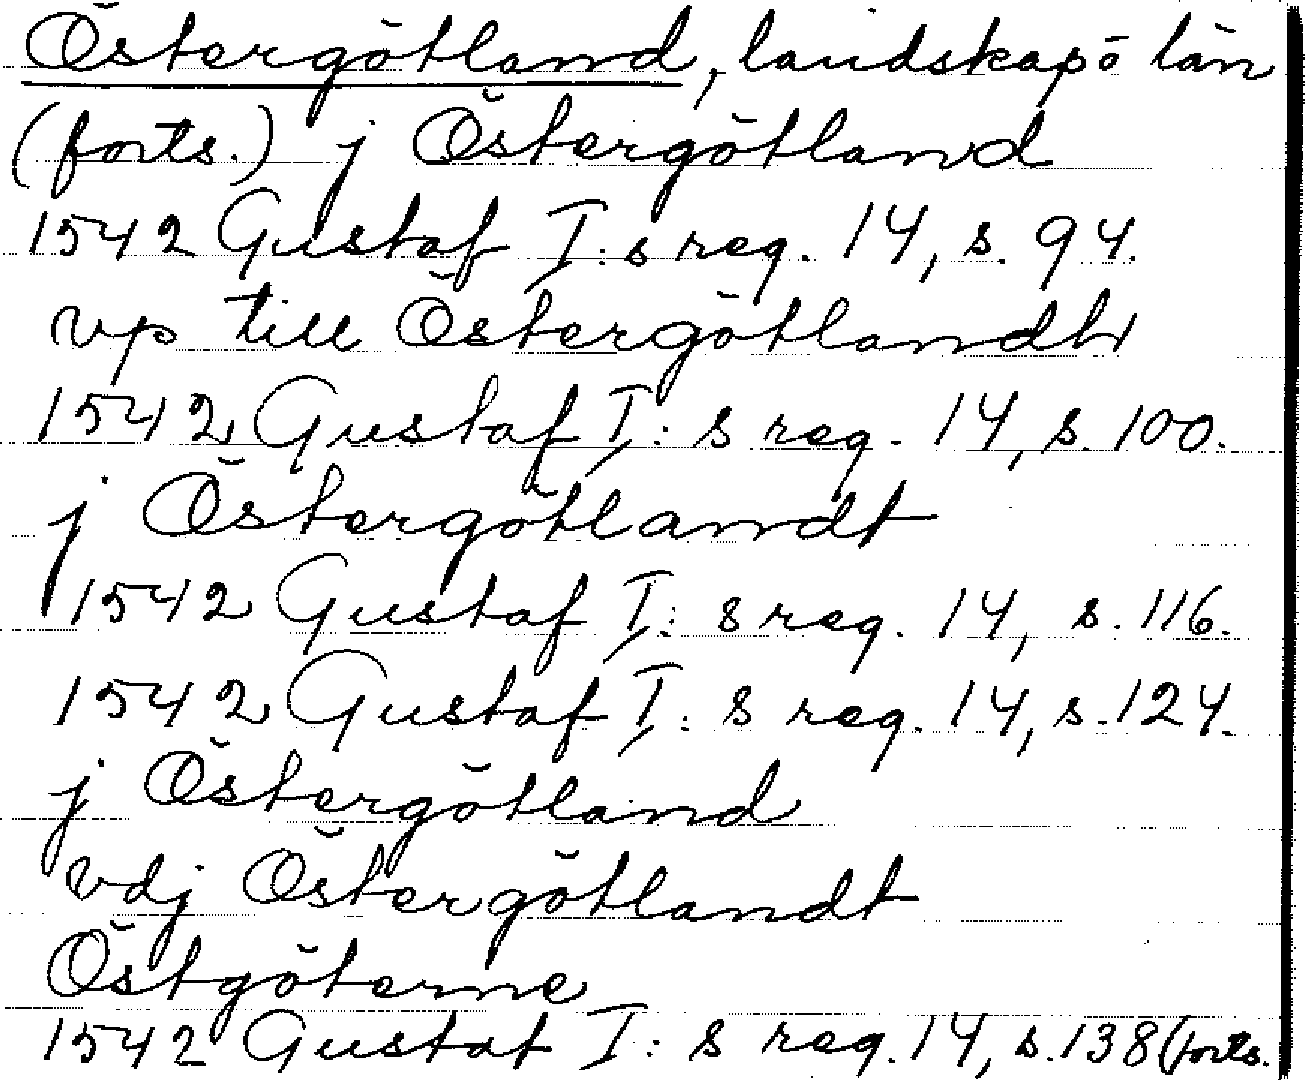 Östergötland, landskap o län
(forts.) j Östergötland
1542 Gustaf I:s reg. 14, s. 94.
vp till Östergötlandh
1542 Gustaf I:s reg. 14, s. 100.
j Östergötlandt
1542 Gustaf I:s reg. 14, s. 116.
1542 Gustaf I:s reg. 14, s. 124.
j Östergötland
vdj Östergötlandt
Östgöterne
1542 Gustaf I:s reg. 14, s. 138 (forts.